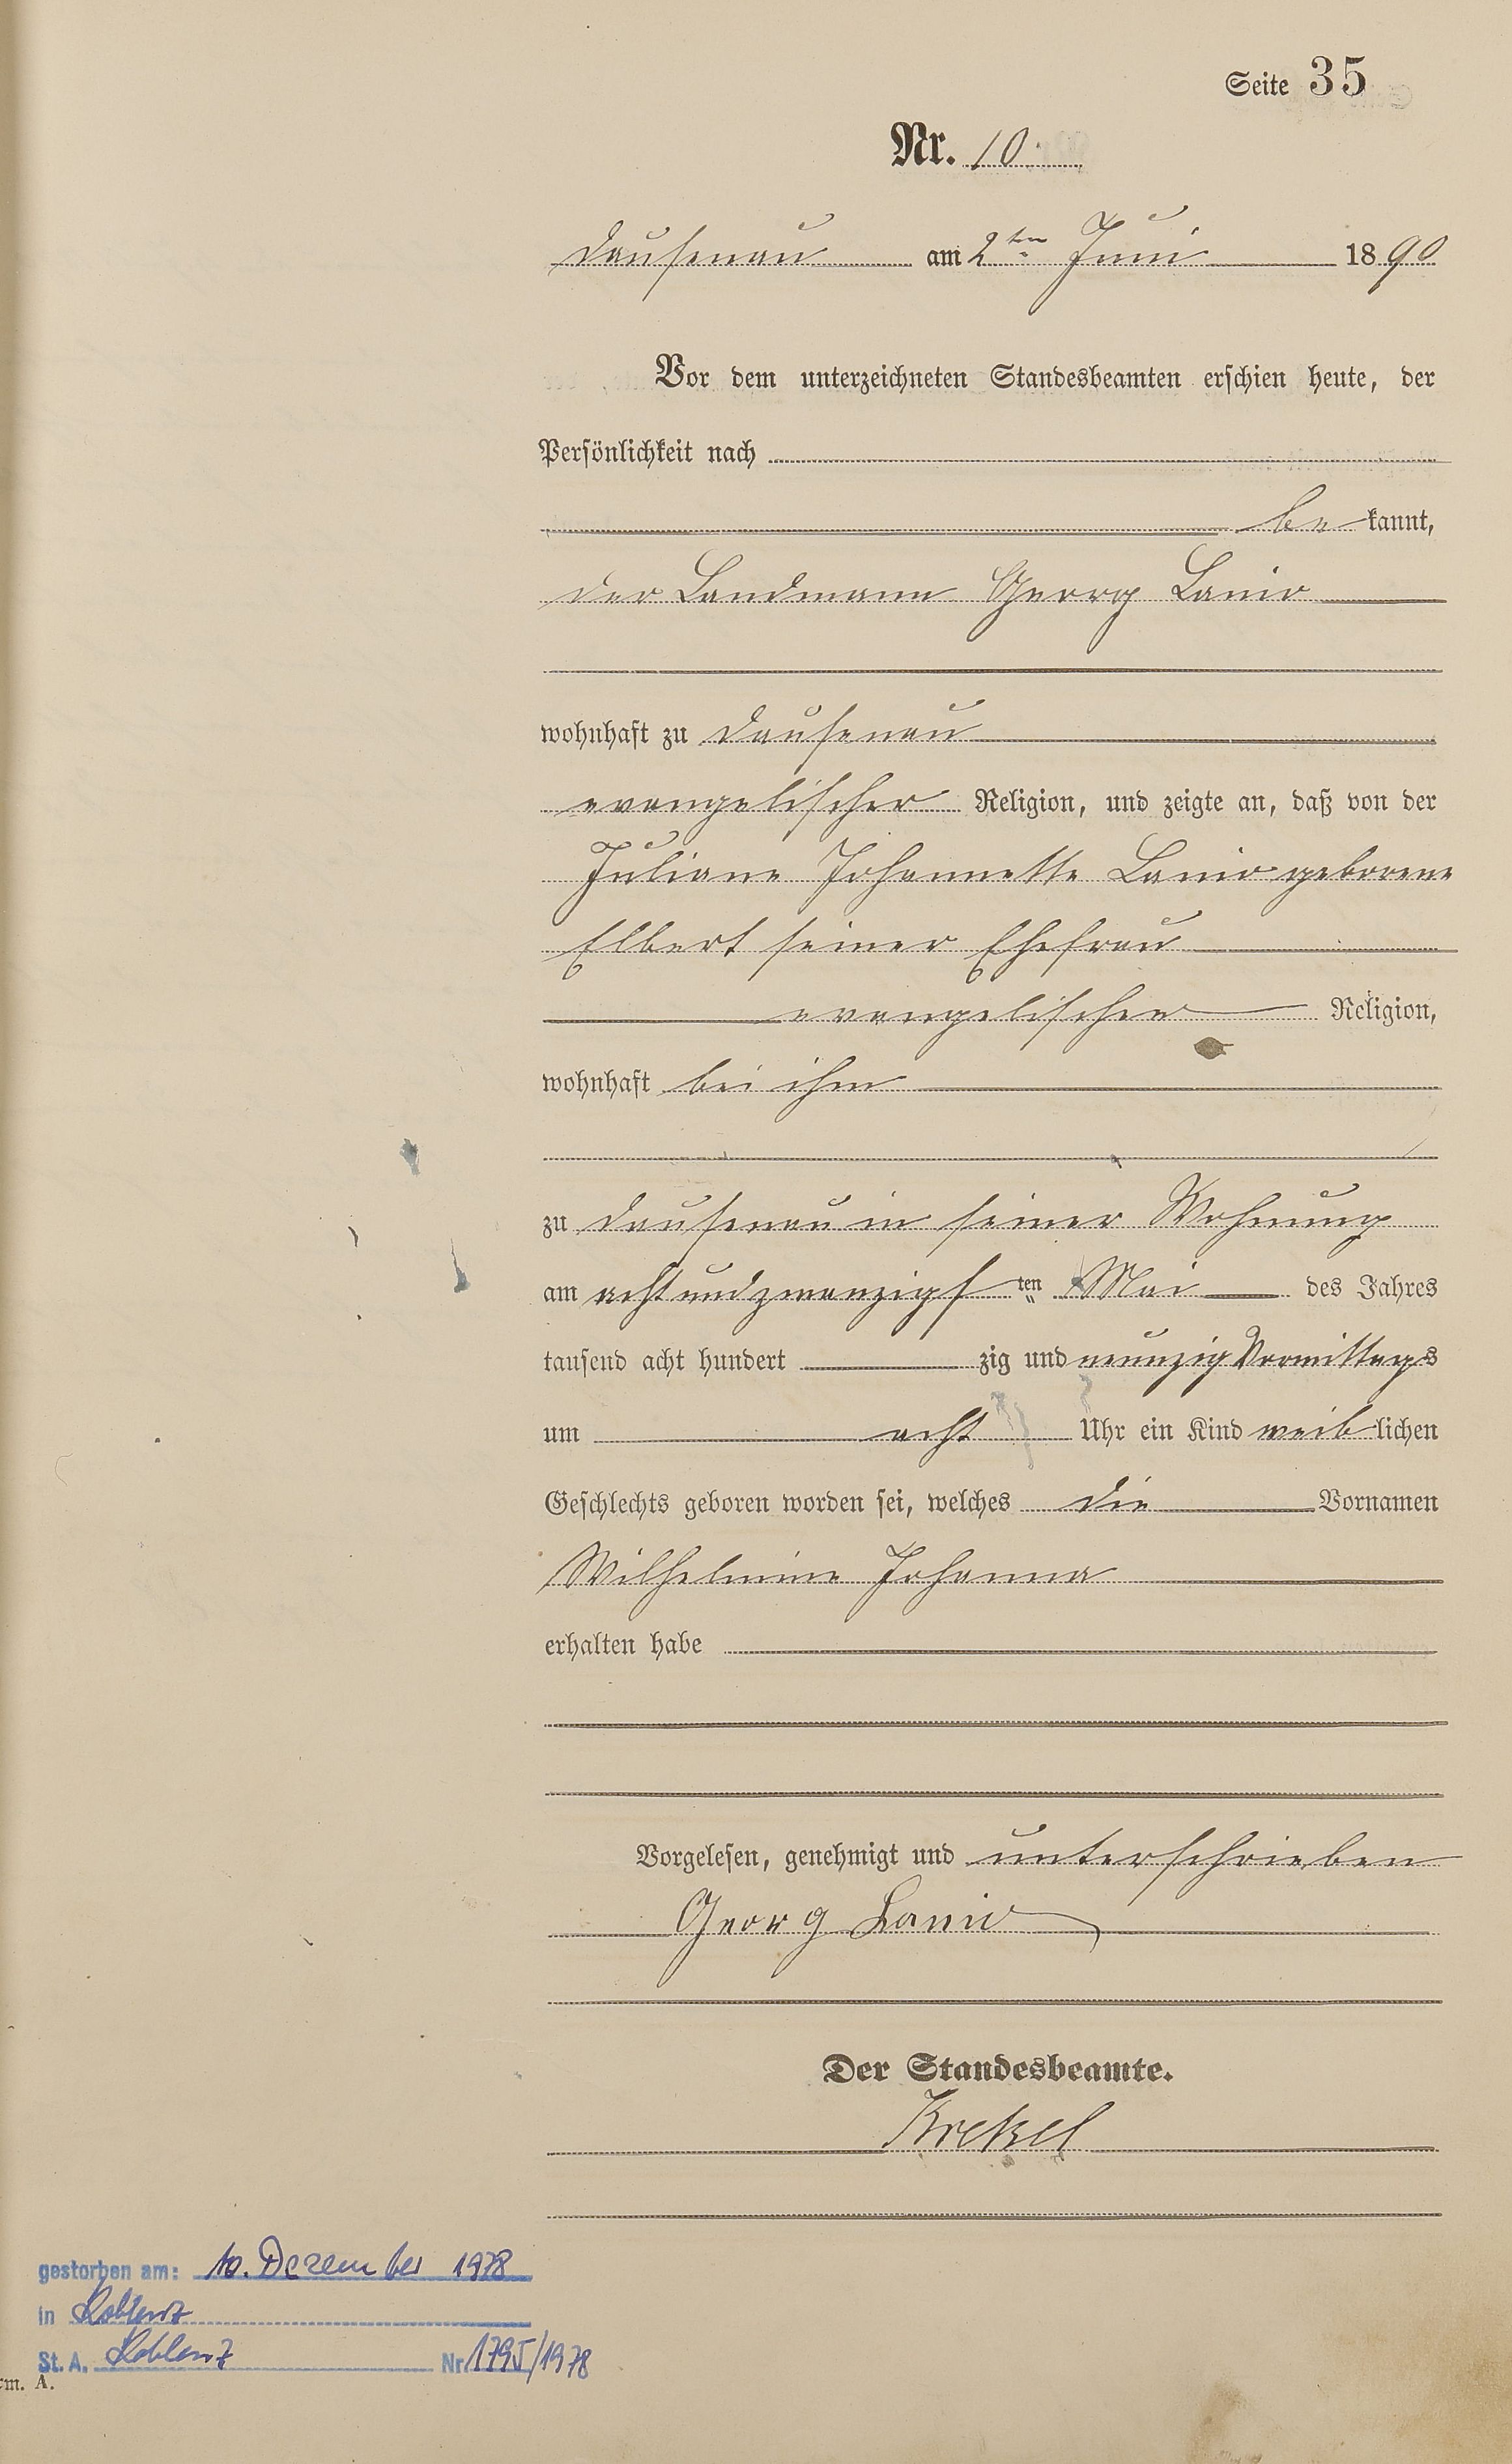 Seite 35
Nr. 10.
Dausenau am 2ten Juni 1890
Vor dem unterzeichneten Standesbeamten erschien heute, der
Persönlichkeit nach
be kannt,
der Landmann Georg Lanio
wohnhaft zu Dausenau
evangelischer Religion, und zeigte an, daß von der
Juliane Johannette Lanio geborene
Elbert seiner Ehefrau
evangelischer Religion,
wohnhaft bei ihm
zu Dausenau in seiner Wohnung
am achtundzwanzigsten Mai des Jahres
tausend acht hundert zig und neunzig Vormittags
um acht Uhr ein Kind weiblichen
Geschlechts geboren worden sei, welches die Vornamen
Wilhelmine Johanna
erhalten habe
Vorgelesen, genehmigt und unterschrieben
Georg Lanio
Der Standesbeamte.
Krekel
gestorben am: 10. Dezember 1978
in Koblenz
St. A. Koblenz Nr. 1795/1978
rm. A.